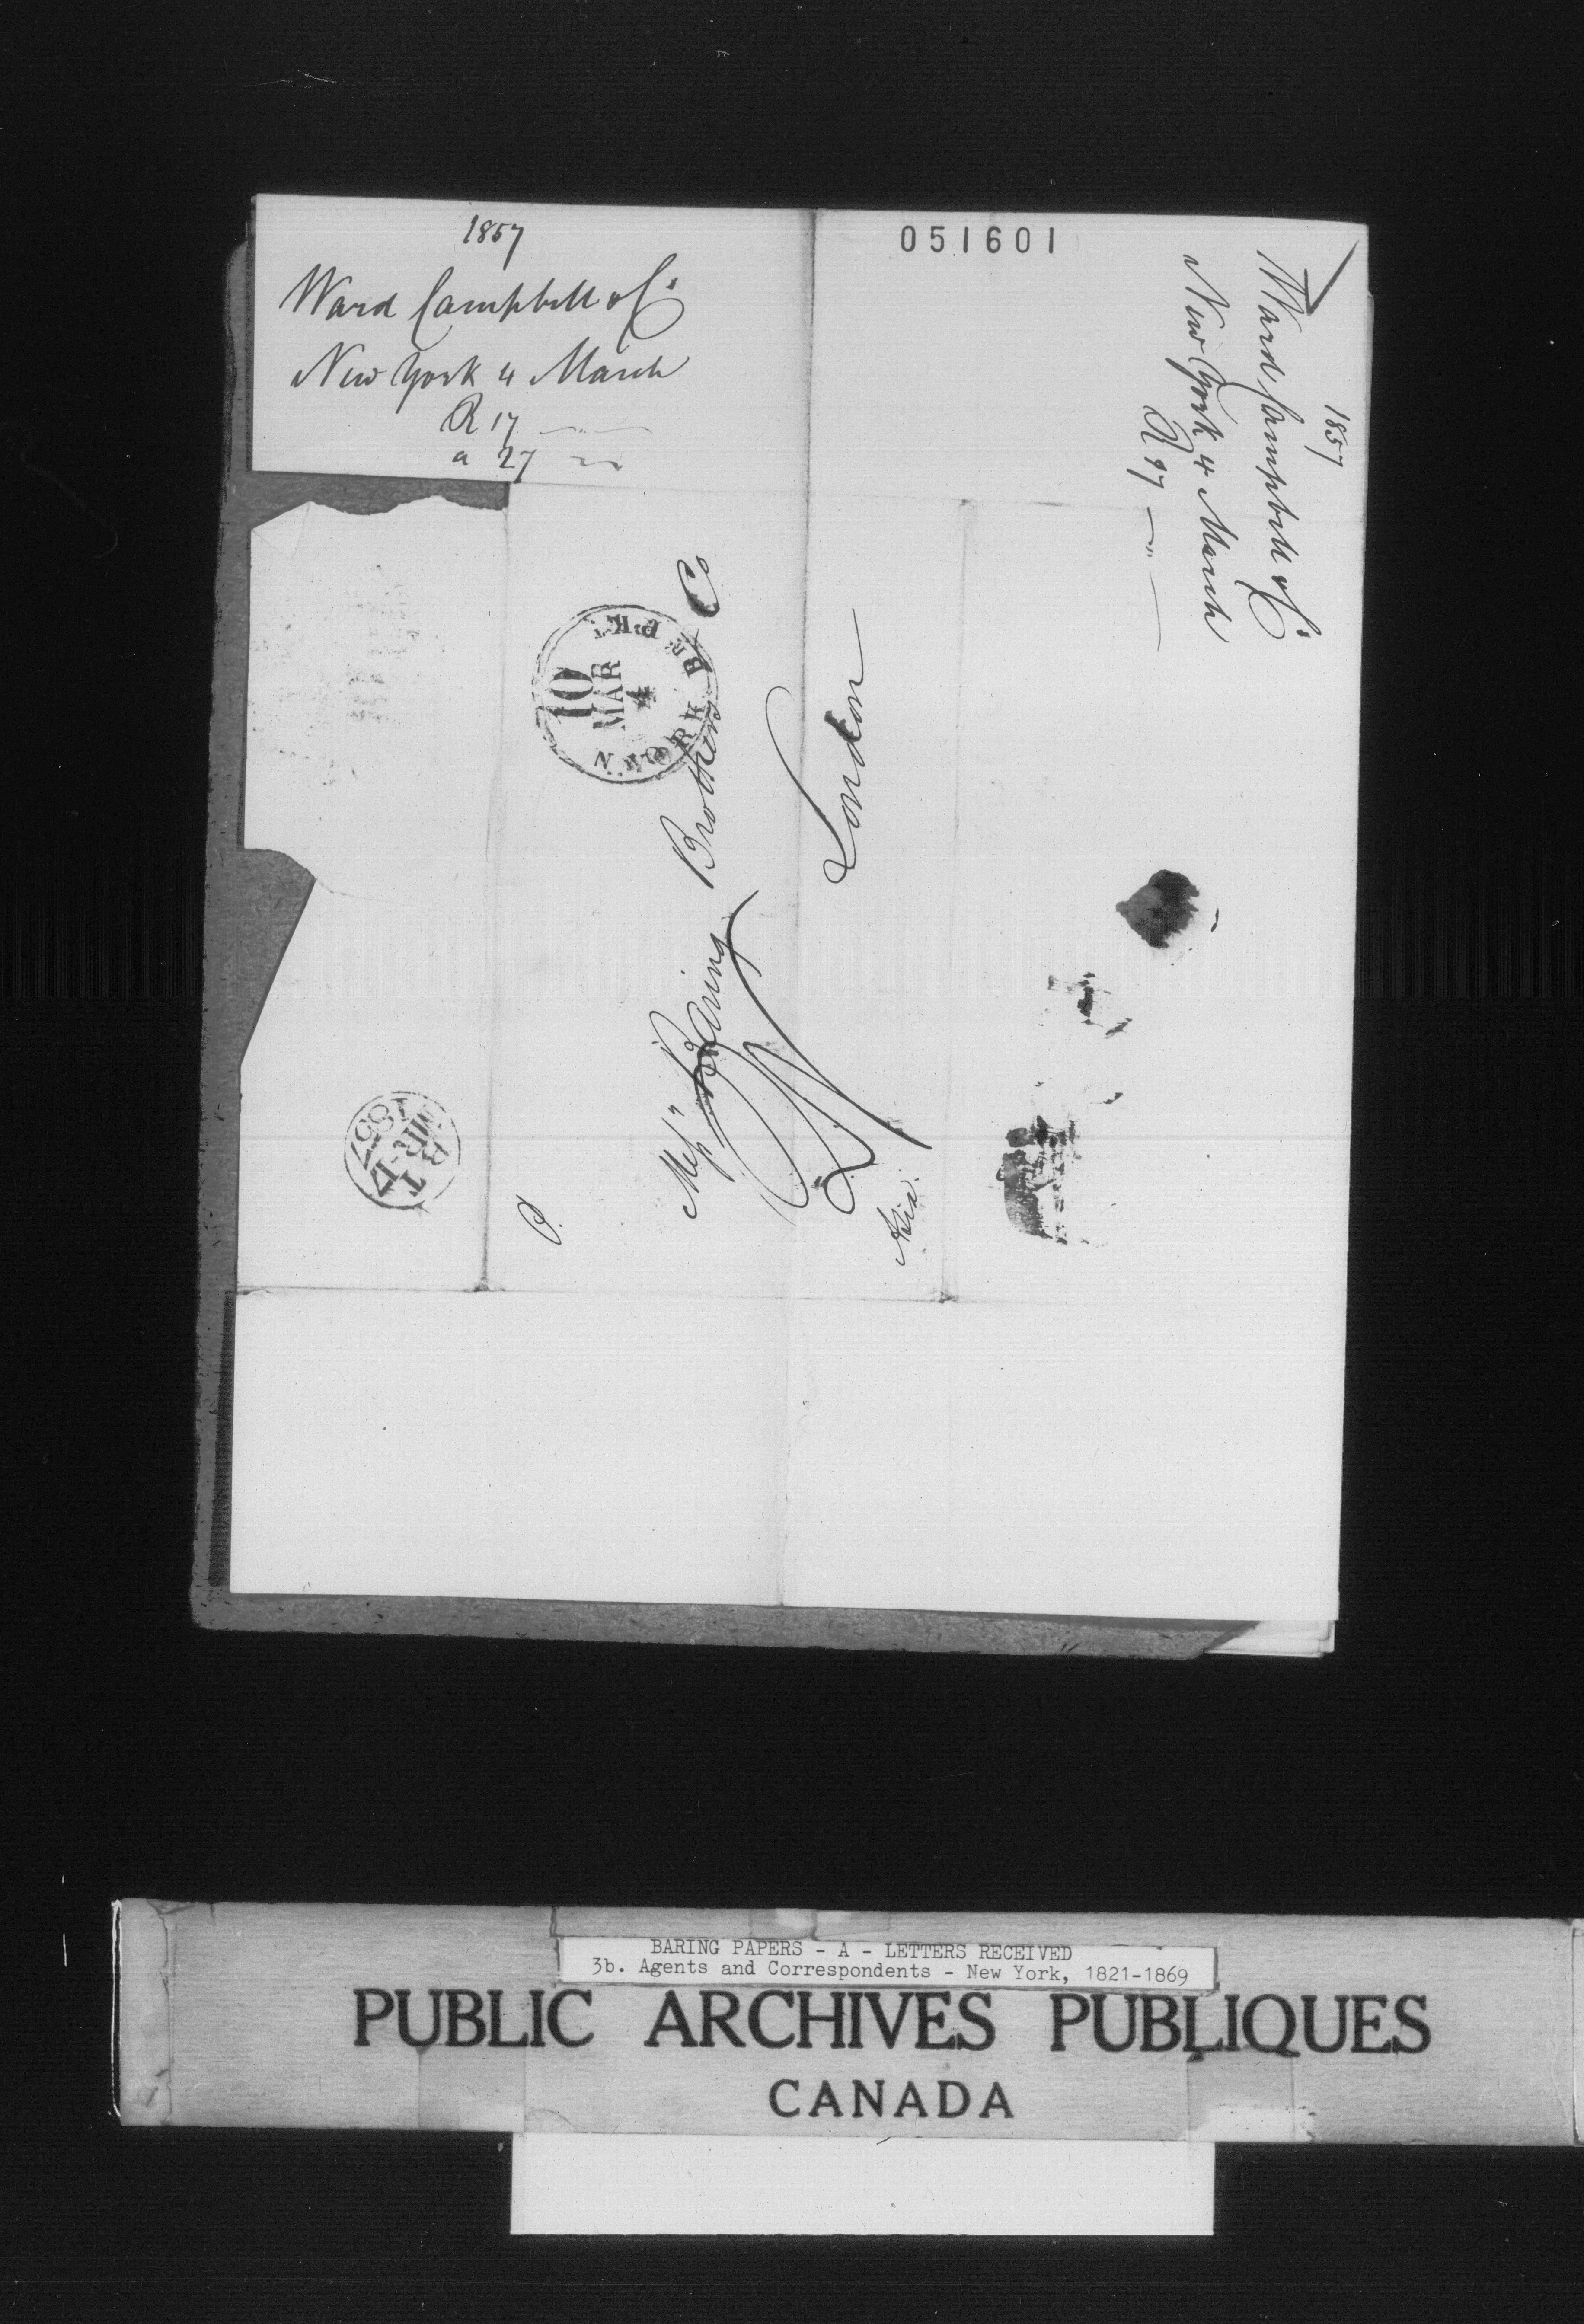 1857
Ward Campbell & Co
New York 4 March
R 17 — " —
a 27 " "
051601
1857
Ward Campbell & Co
New York 4 March
R 17 — " —
10
MAR
4
N. YORK BR. PKT
Messrs Baring Brothers & Co
London
P.
B T
MR 17
1857
BARING PAPERS - A - LETTERS RECEIVED
3b. Agents and Correspondents - New York, 1821-1869
PUBLIC ARCHIVES PUBLIQUES
CANADA